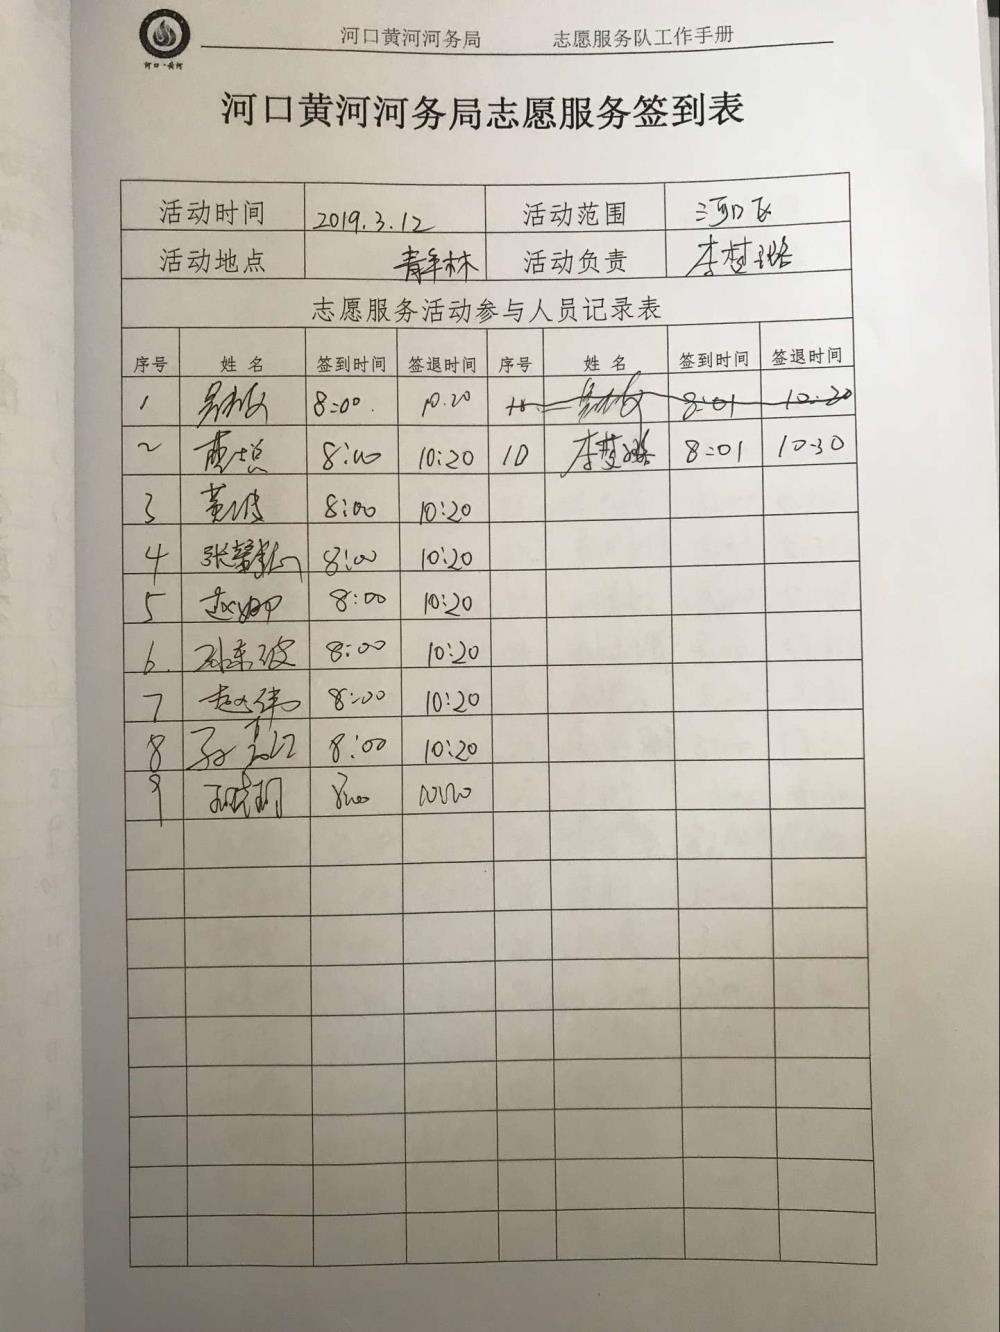 河口黄河河务局 志愿服务队工作手册
河口·黄河
河口黄河河务局志愿服务签到表
活动时间 2019.3.12 活动范围 河口区
活动地点 青年林 活动负责 李梦璐
志愿服务活动参与人员记录表
序号 姓名 签到时间 签退时间 序号 姓名 签到时间 签退时间
1 8:00 10:20 8:01 10:20
2 8:00 10:20 10 李梦璐 8:01 10:30
3 8:00 10:20
4 8:00 10:20
5 赵娜 8:00 10:20
6 8:00 10:20
7 赵伟 8:00 10:20
8 8:00 10:20
9 8:00 10:20